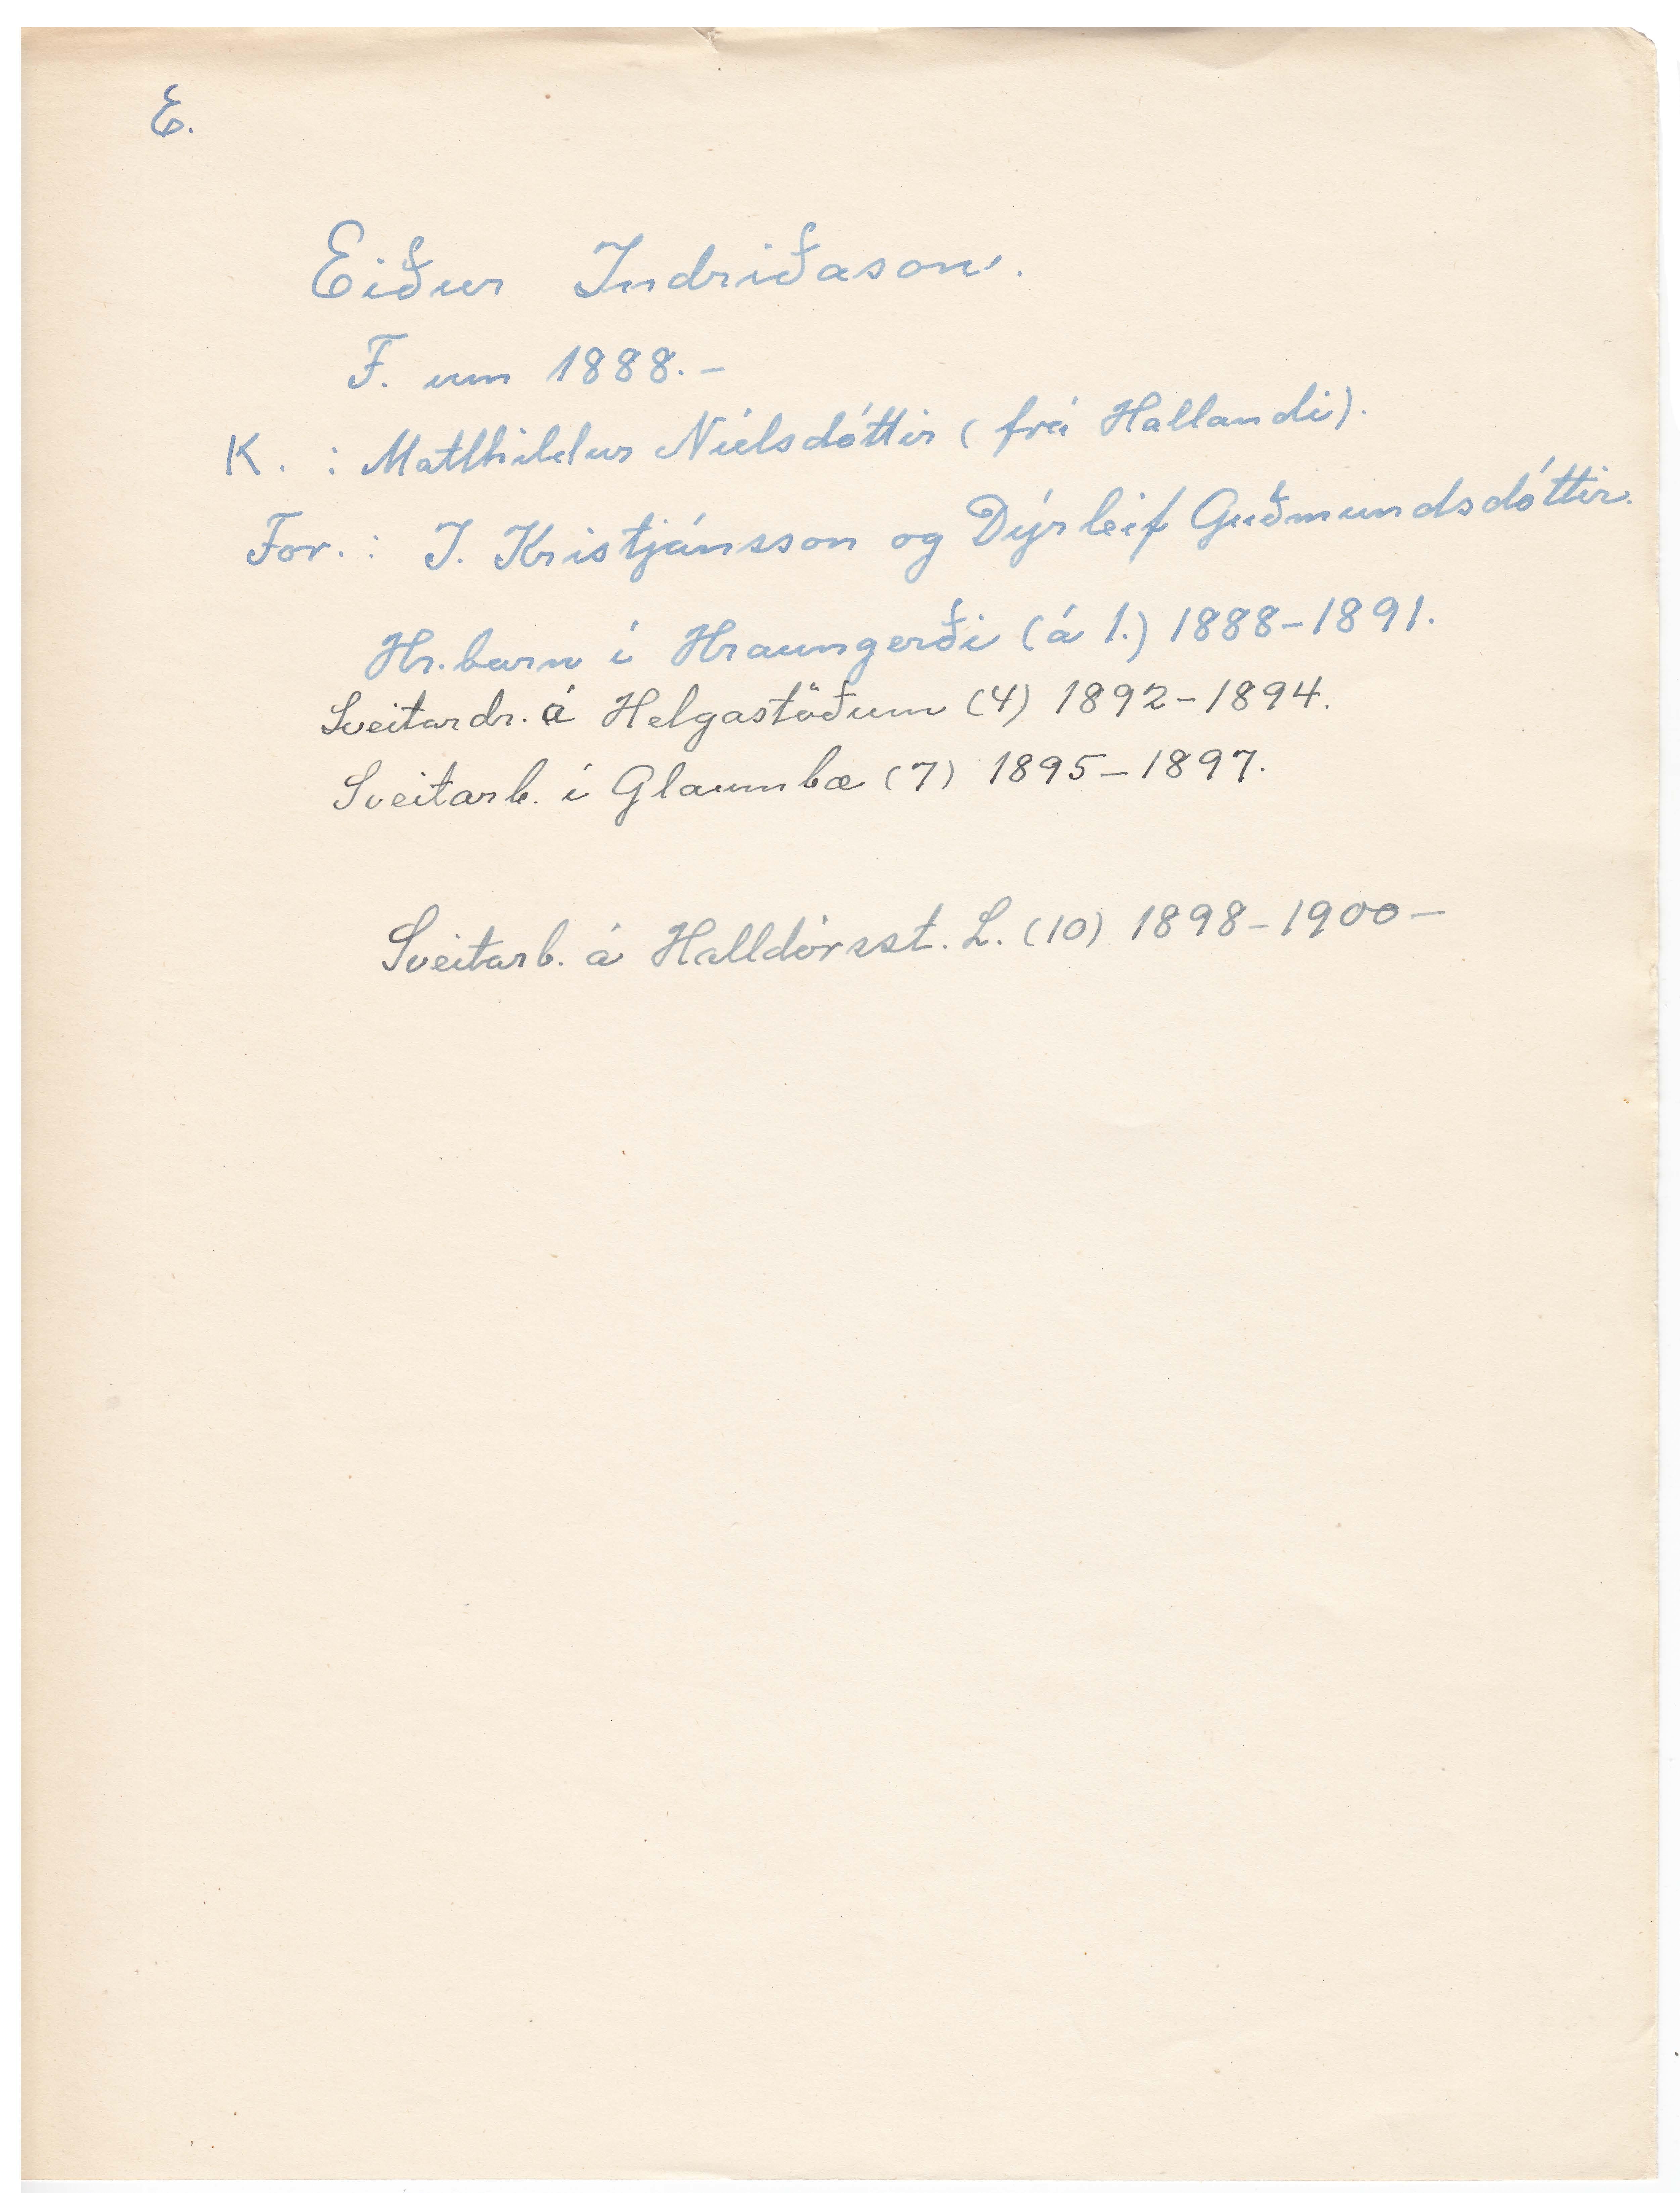 E.
Eiður Indriðason.
F. um 1888. –
K. : Mathildur Níelsdóttir (frá Hallandi).
For. : I. Kristjánsson og Dýrleif Guðmundsdóttir.
Hr.barn í Hraungerði (á 1.) 1888–1891.
Sveitardr. á Helgastöðum (4) 1892–1894.
Sveitarb. í Glaumbæ (7) 1895–1897.
Sveitarb. á Halldórsst. L. (10) 1898–1900 –